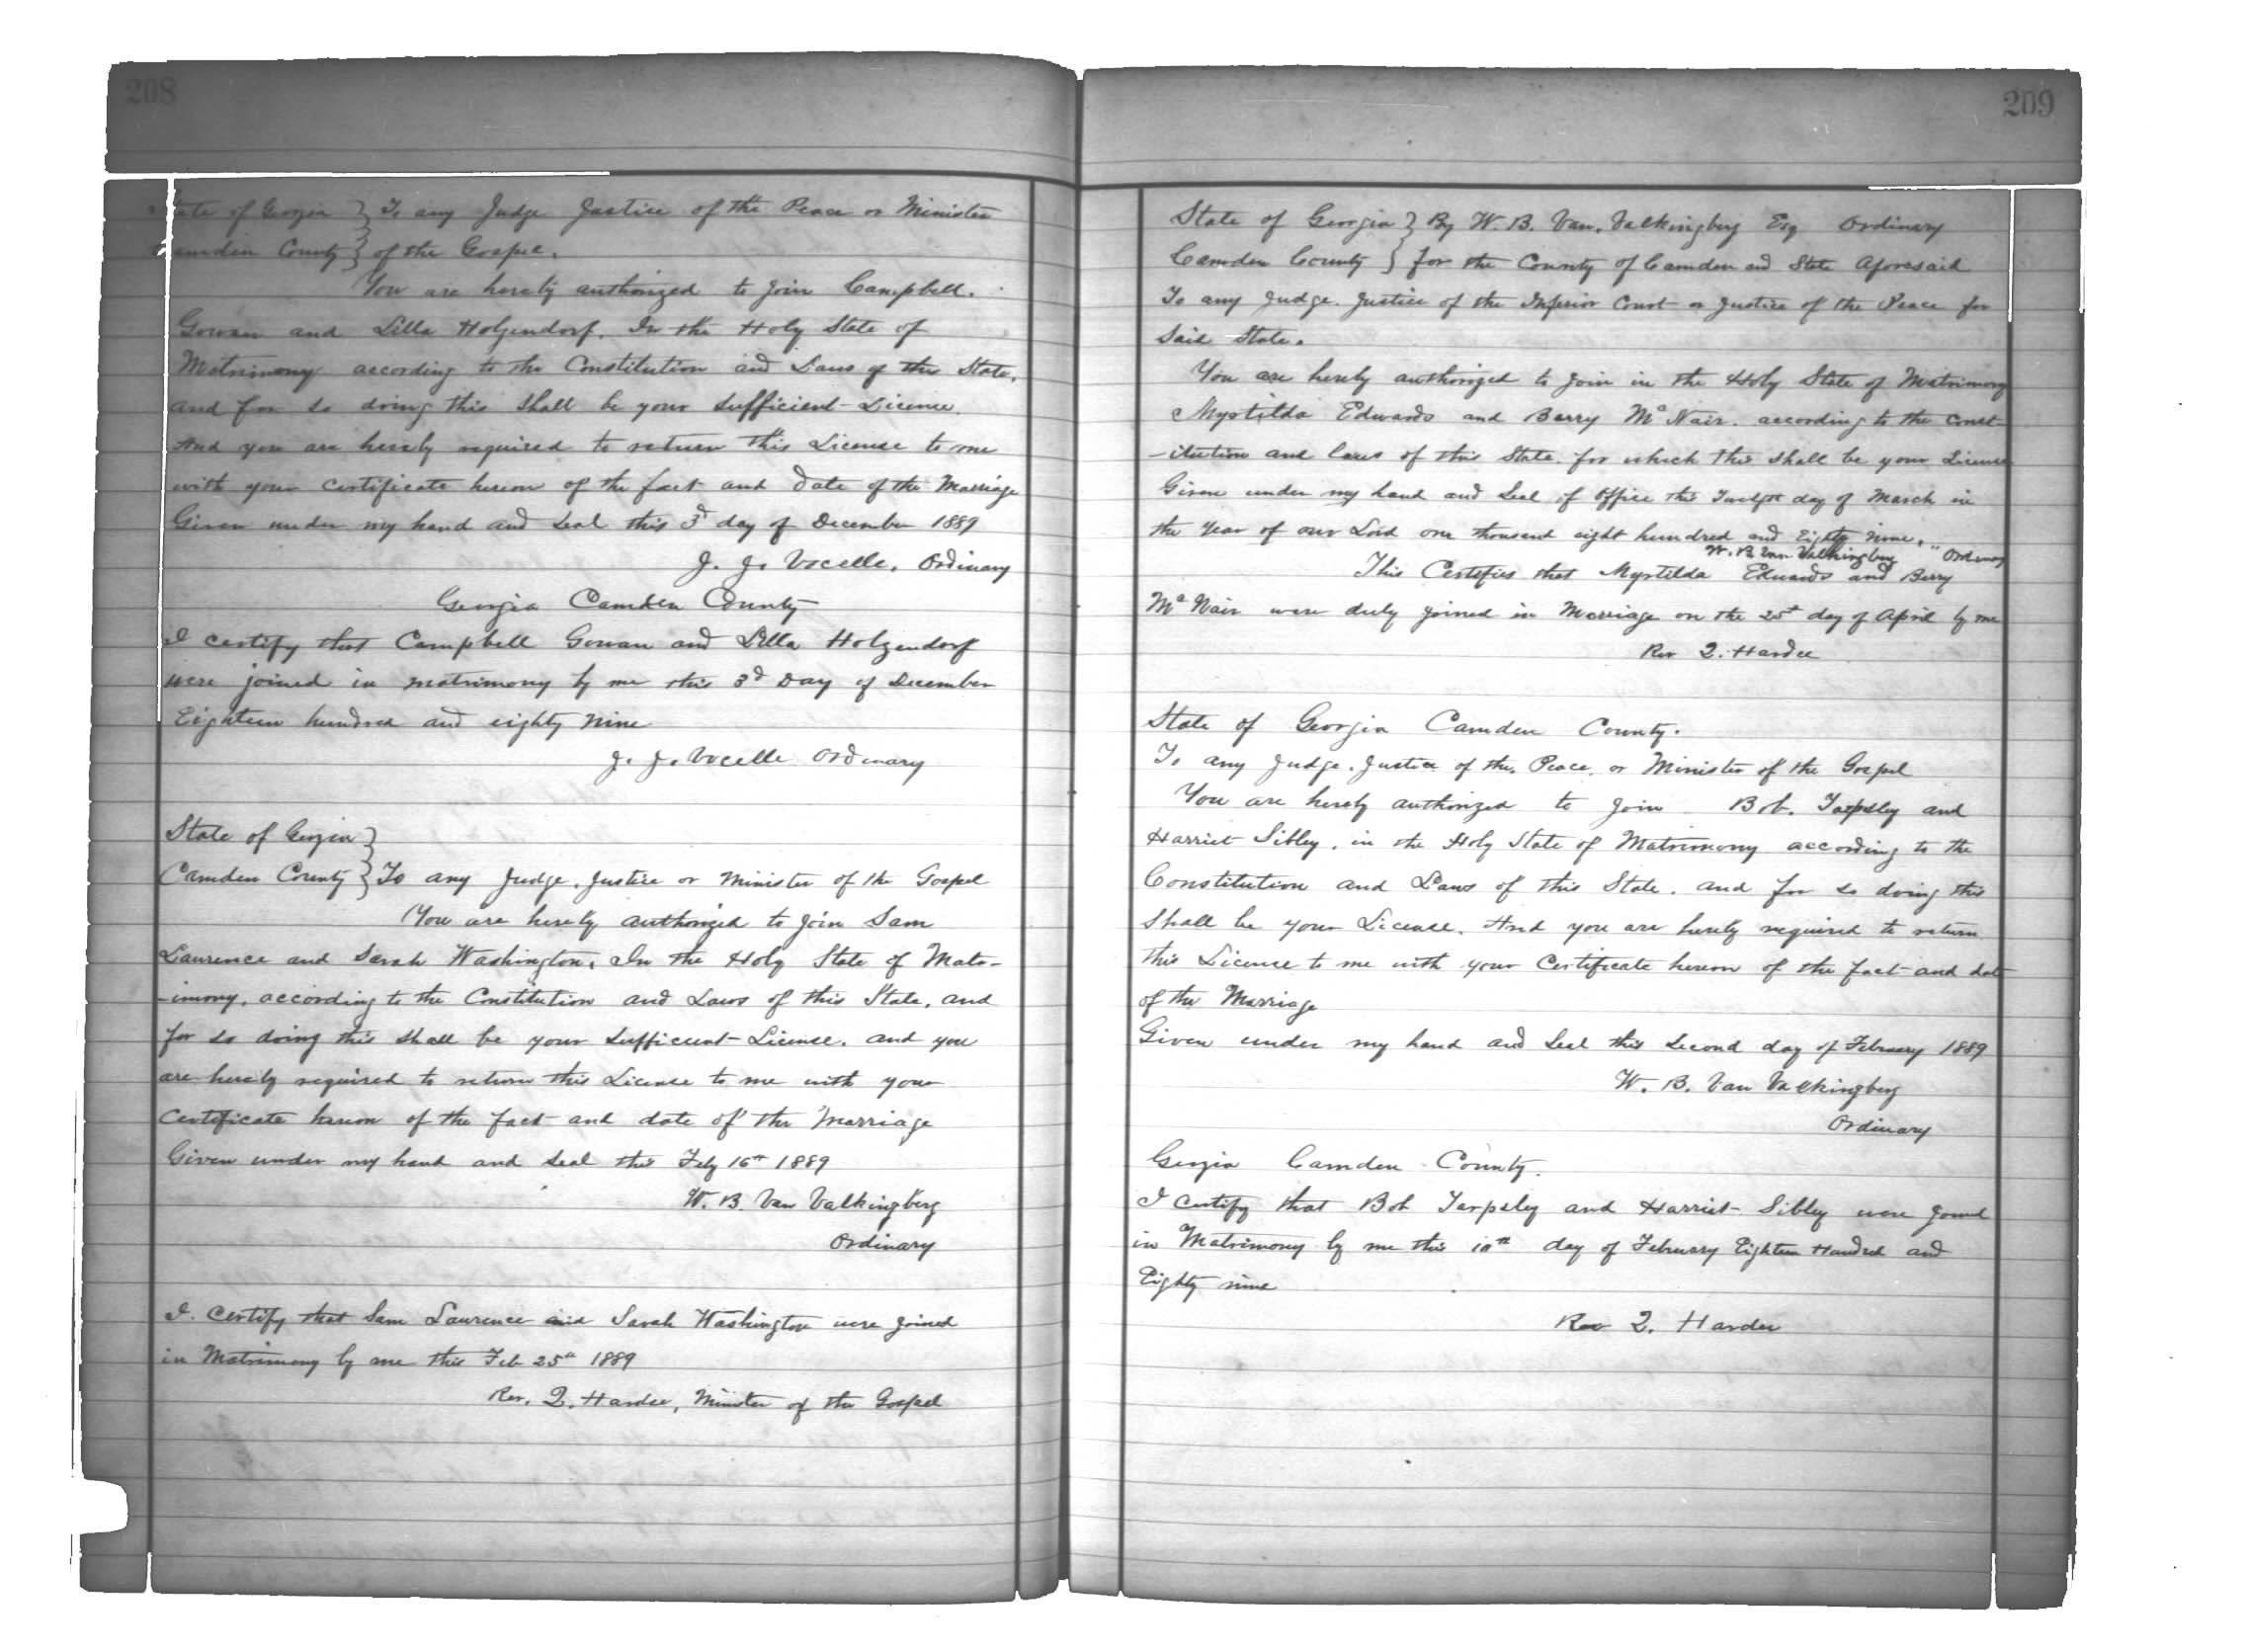 208
State of Georgia } To any Judge Justice of the Peace or Minister
Camden County } of the Gospel.
You are hereby authorized to join Campbell.
Gowan and Lilla Holzendorf. In the Holy State of
Matrimony according to the Constitution and Laws of this State,
and for so doing this shall be your sufficient License.
And you are hereby required to return this License to me
with your certificate hereon of the fact and date of the Marriage
Given under my hand and seal this 3d day of December 1889
J. J. Vocelle, Ordinary
Georgia Camden County
I certify that Campbell Gowan and Lilla Holzendorf
were joined in matrimony by me this 3d Day of December
Eighteen hundred and eighty nine
J. J. Vocelle Ordinary
State of Georgia }
Camden County } To any Judge, Justice or Minister of the Gospel
You are hereby authorized to join Sam
Laurence and Sarah Washington, In the Holy State of Matr-
-imony, according to the Constitution and Laws of this State, and
for so doing this shall be your sufficient License. and you
are hereby required to return this License to me with your
Certificate hereon of the fact and date of the Marriage
Given under my hand and seal this Feby 16th 1889
W. B. Van Valkingberg
Ordinary
I. Certify that Sam Laurence and Sarah Washington were joined
in Matrimony by me this Feb 25th 1889
Rev. Q. Hardee, Minister of the Gospel
209
State of Georgia } By W. B. Van, Valkingberg Esq Ordinary
Camden County } for the County of Camden and State Aforesaid
To any Judge. Justice of the Inferior Court or Justice of the Peace for
said State.
You are hereby authorized to join in the Holy State of Matrimony
Myrtilda Edwards and Berry McNair. according to the Const-
-itution and laws of this State. for which this shall be your License
Given under my hand and Seal of Office this Twelfth day of March in
the Year of our Lord one thousand eight hundred and Eighty Nine.
W. B. Van Valkingberg Ordinary
This Certifies that Myrtilda Edwards and Berry
McNair were duly joined in Marriage on the 25th day of April by me
Rev Q. Hardee
State of Georgia Camden County.
To any Judge. Justice of the, Peace, or Minister of the Gospel
You are hereby authorized to join Bob. Tarpsley and
Harriet Sibley. in the Holy State of Matrimony according to the
Constitution and Laws of this State. and for so doing this
shall be your License. And you are hereby required to return
this License to me with your Certificate hereon of the fact and dat
of the Marriage
Given under my hand and Seal this second day of February 1889
W. B. Van Valkingberg
Ordinary
Georgia Camden County.
I certify that Bob Tarpsley and Harriet Sibley were joined
in Matrimony by me this 10th day of February Eighteen Hundred and
Eighty nine
Rev Q. Hardee